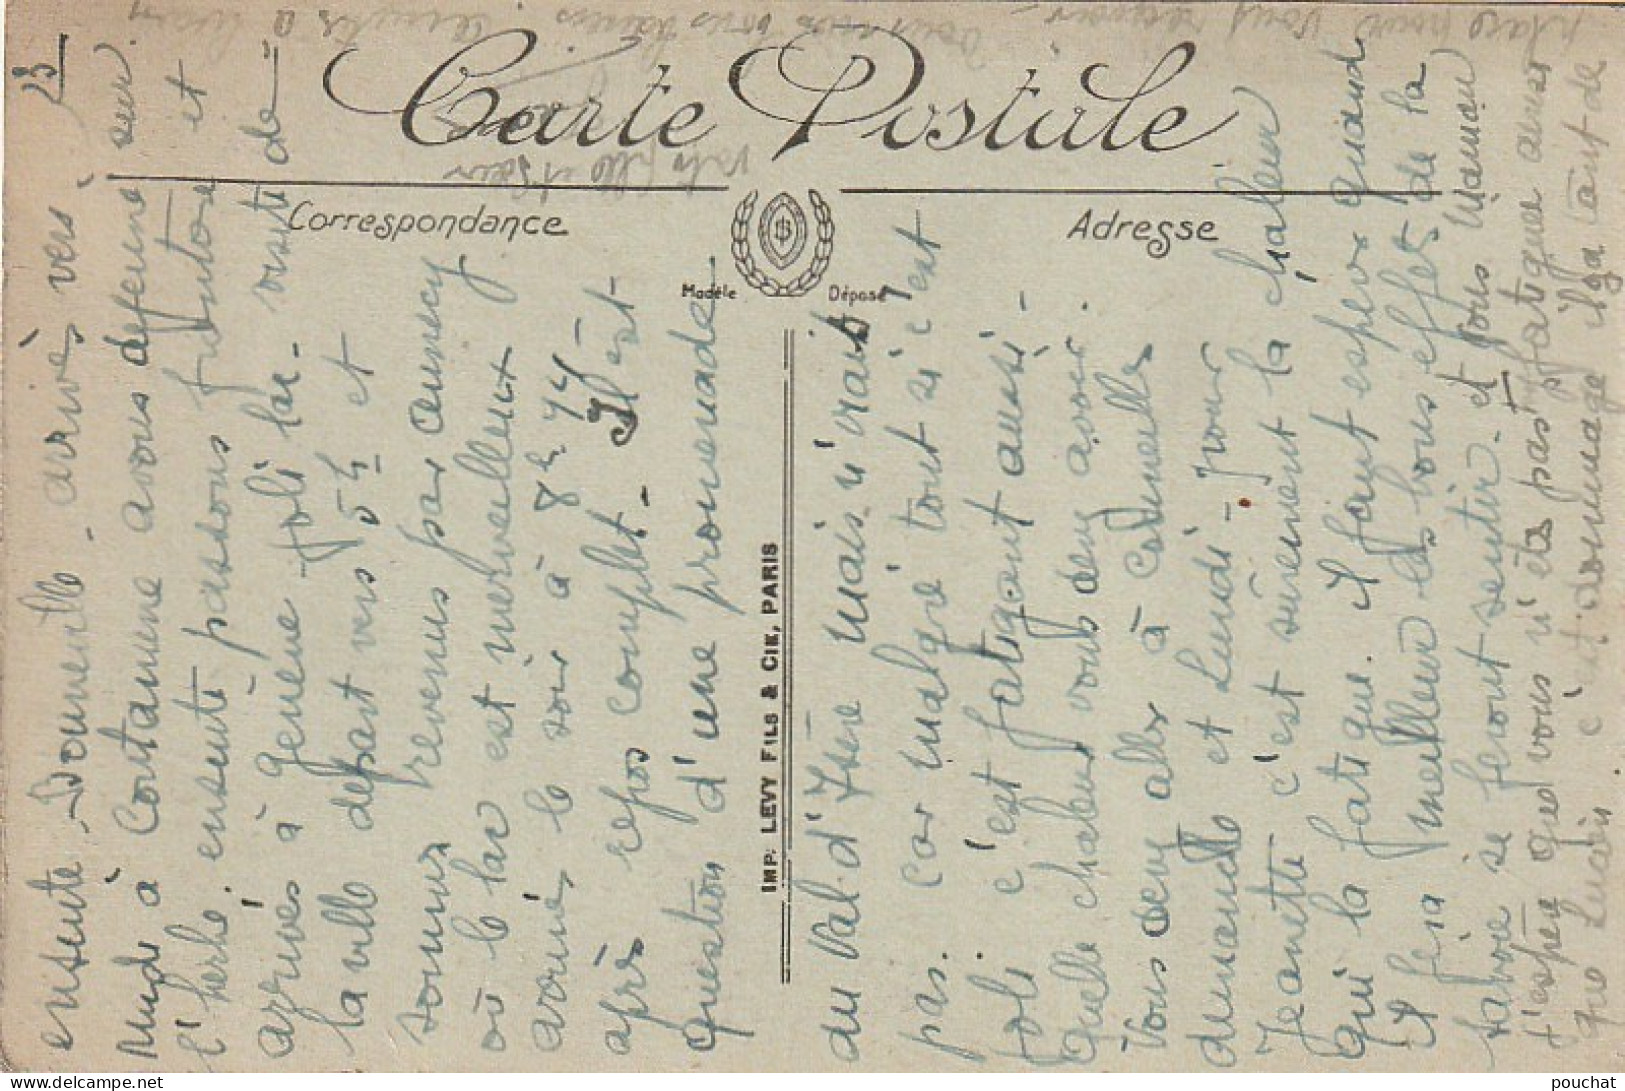 3
ensuite Bonneville - arrivés vers
midi à Contamine avons dejeuné sur
l'herbe. ensuite passons frontière et
arrivés à genève - joli lac - visite de
la ville depart vers 5h et
sommes revenus par annecy
où le lac est merveilleux
arrivés le soir à 8h 44 -
après repos complet - Il est
question d'une promenade
du Val d'Isère mais n'irait
pas. car malgré tout si c'est
joli c'est fatigant aussi -
quelle chaleur vous devez avoir.
Vous devez aller à
demande et Lundi - pour
Jeanette c'est sûrement la chaleur
qui la fatigue. il faut espérer quand
il fera meilleur les bons effets de la
savoie se feront sentir - et vous Maman
j'espère que vous n'êtes pas fatiguée aussi
que c'est dommage il y a tant de
place pour vous
votre fille et sœur
Carte Postale
Correspondance
Adresse
Modèle
Déposé
IMP. LEVY FILS & CIE, PARIS
pouchat
delcampe.net